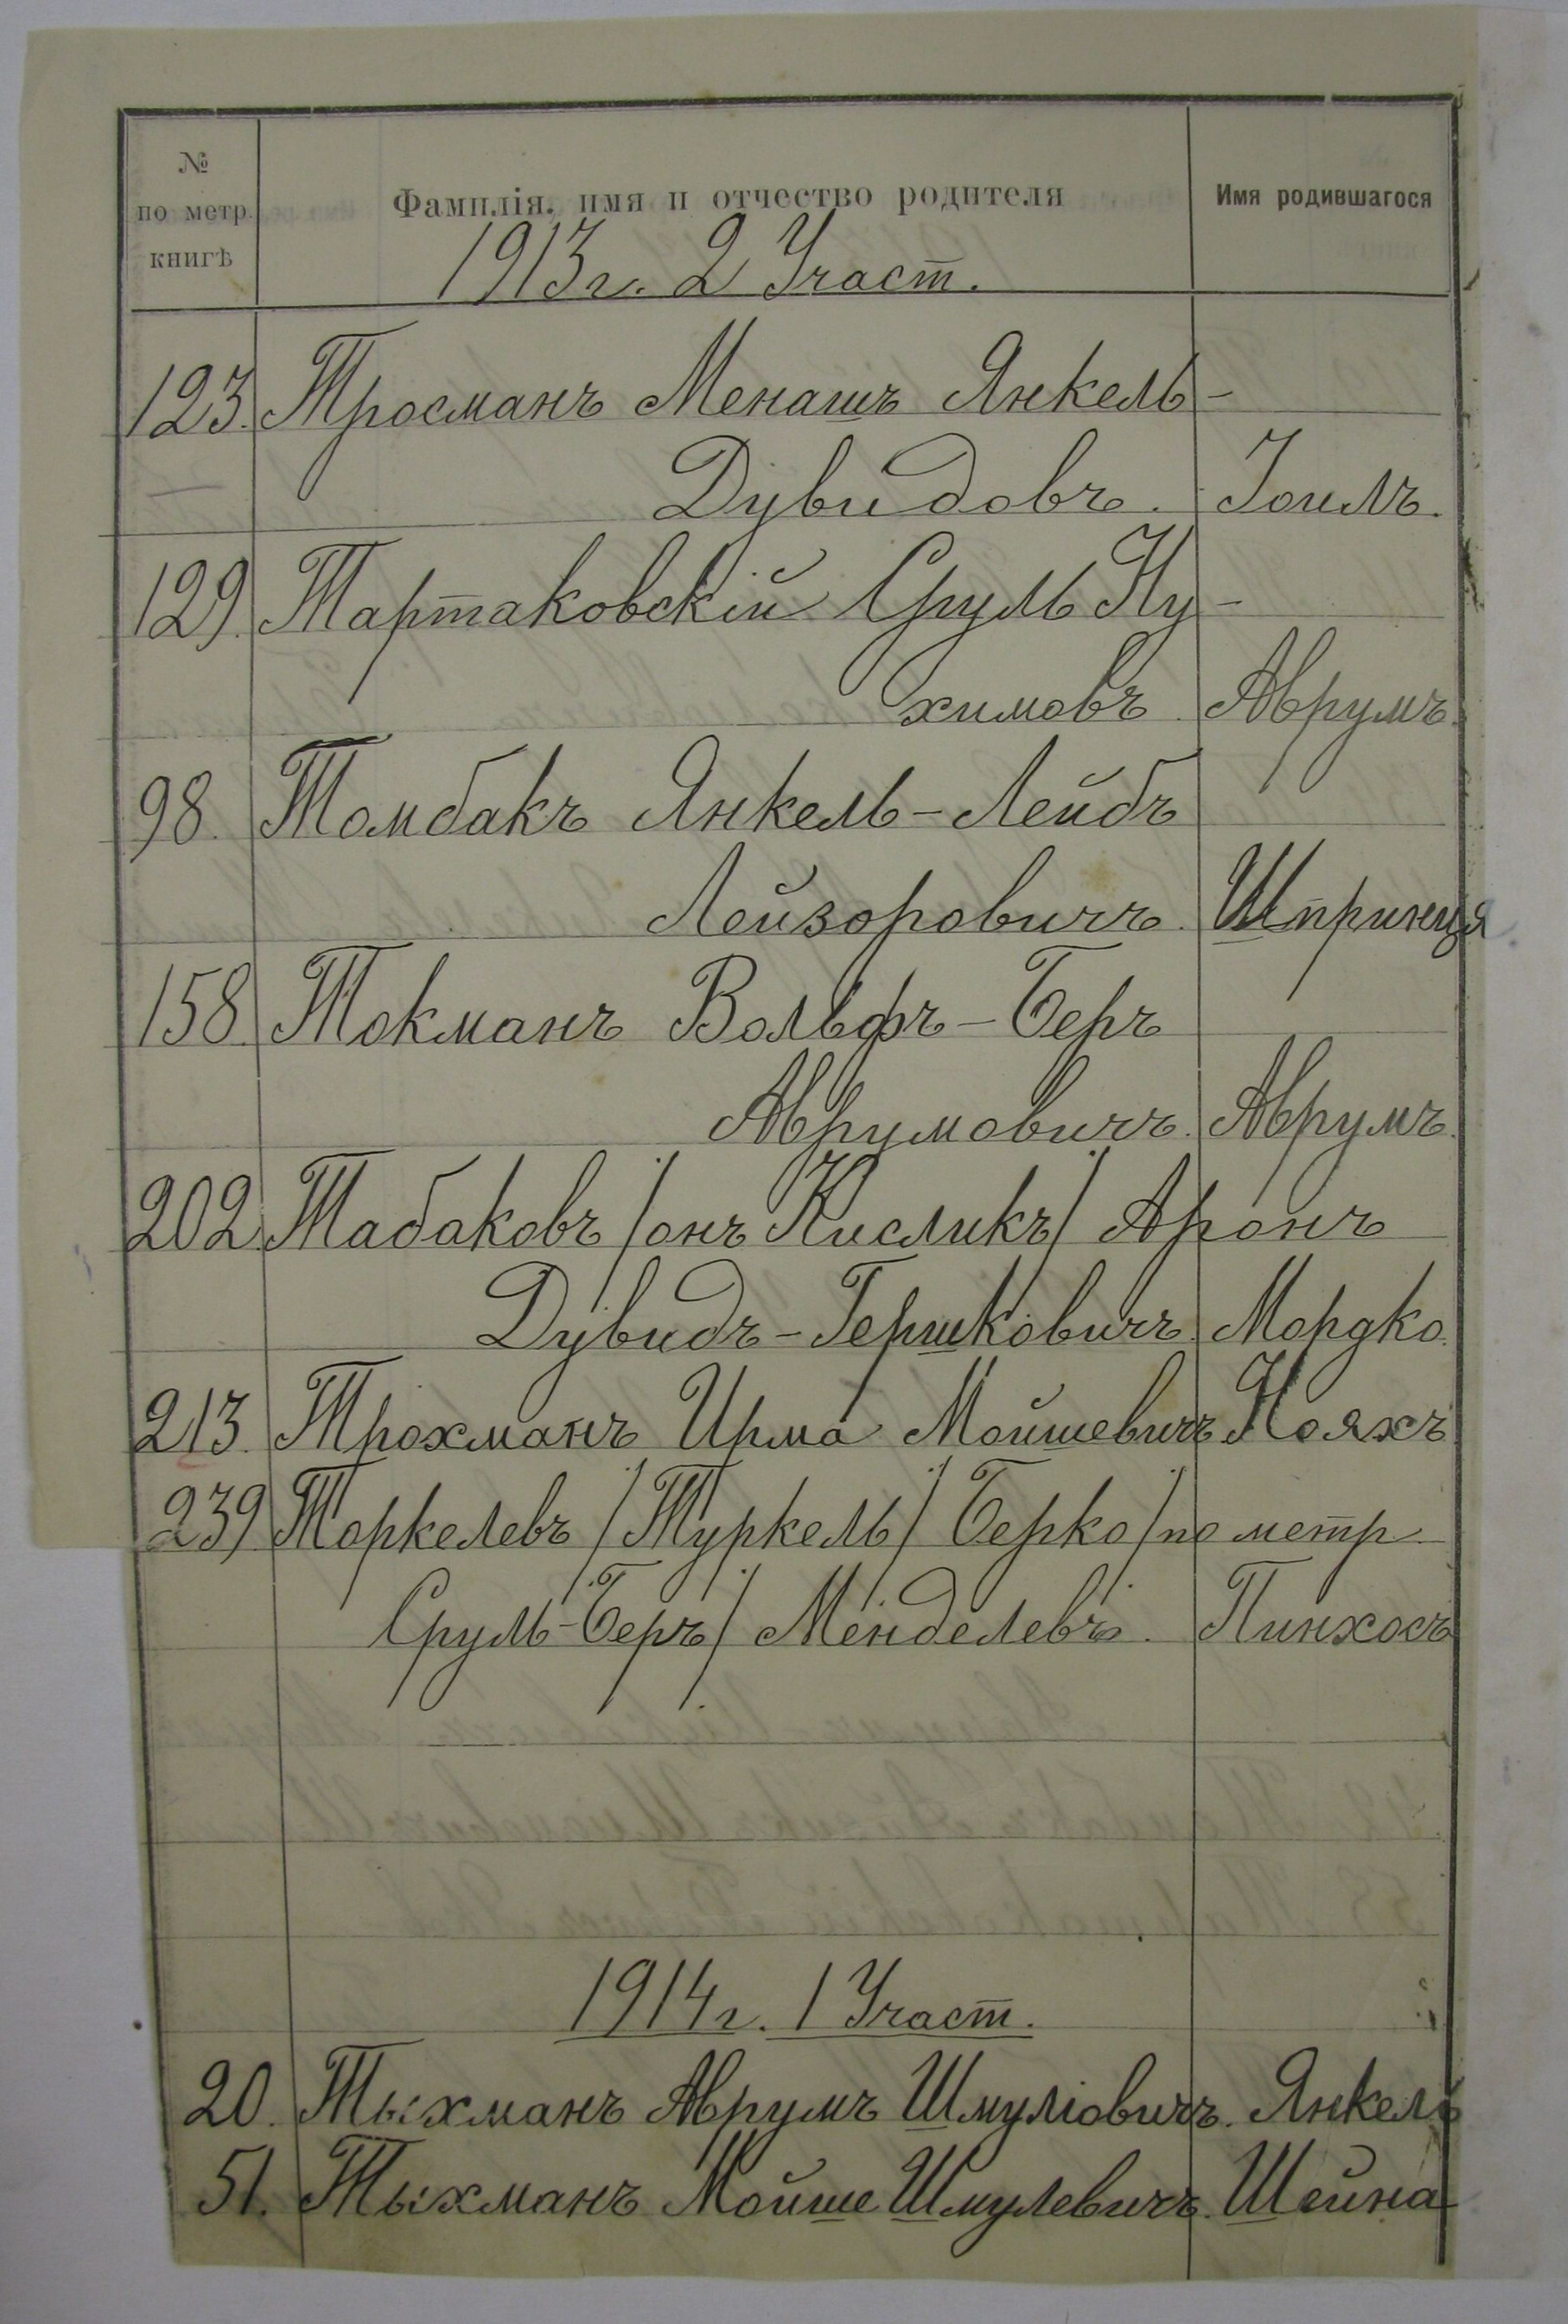 № по метр. книгѣ
Фамилія, имя и отчество родителя
Имя родившагося
1913 г. 2 Участ.
123. Тросманъ Менашъ Янкель-
Дувидовъ. Іоилъ.
129. Тартаковскій Сруль Ну-
химовъ. Аврумъ.
98. Томбакъ Янкель-Лейбъ
Лейзоровичъ. Шпринця
158. Токманъ Вольфъ-Беръ
Аврумовичъ. Аврумъ.
202. Табаковъ /онъ Кисликъ/ Аронъ
Дувидъ-Гершковичъ. Мордко.
213. Трохманъ Ирма Мойшевичъ Нояхъ
239 Торкелевъ /Туркель/ Берко /по метр.
Сруль-Беръ/ Менделевъ. Пинхосъ
1914 г. 1 Участ.
20. Тыхманъ Аврумъ Шмуліовичъ. Янкель
51. Тыхманъ Мойше Шмулевичъ. Шейна